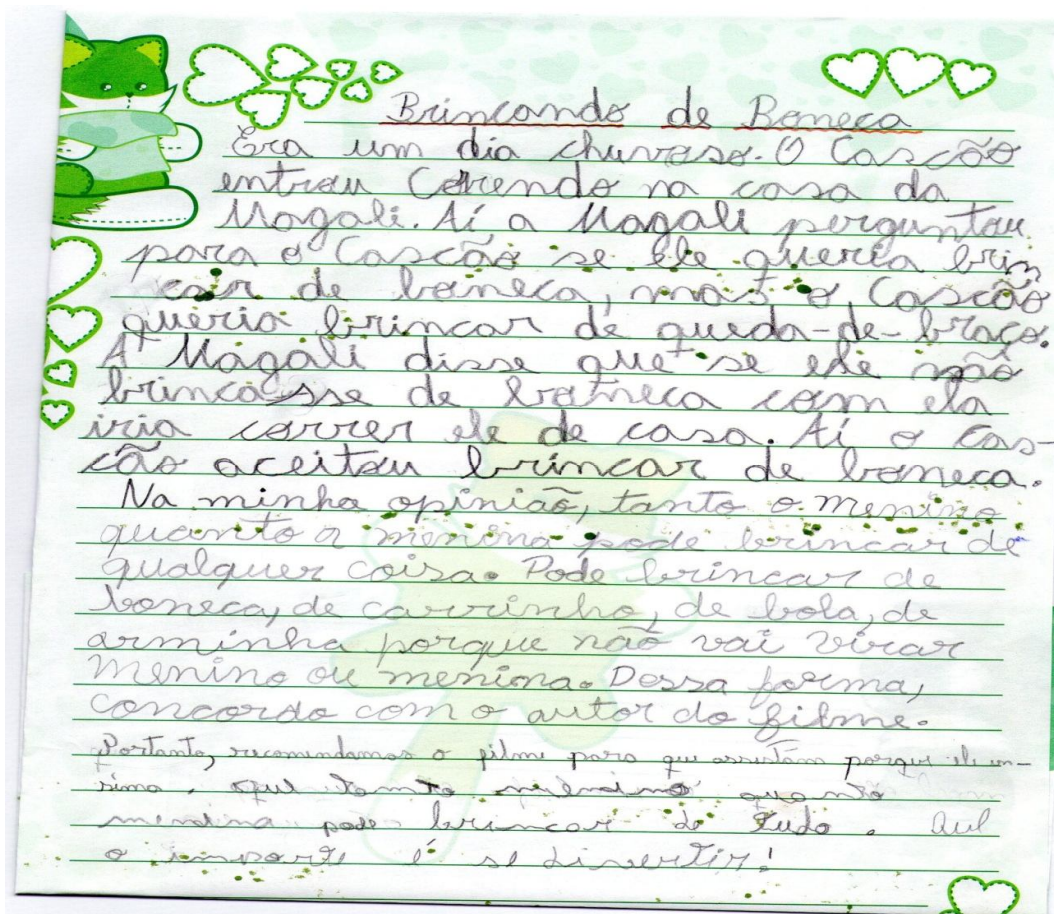 Brincando de Boneca
Era um dia chuvoso. O Cascão
entrou Correndo na casa da
Magali. Aí a Magali perguntou
para o Cascão se ele queria brin
car de boneca, mas o Cascão
queria brincar de queda-de-braço.
A Magali disse que se ele não
brincasse de boneca com ela
iria correr ele de casa. Aí o Cas-
cão aceitou brincar de boneca.
Na minha opinião, tanto o menino
quanto a menina pode brincar de
qualquer coisa. Pode brincar de
boneca, de carrinho, de bola, de
arminha porque não vai virar
menino ou menina. Dessa forma,
concordo com o autor do filme.
Portanto, recomendamos o filme para que assistam porque ele en-
sima. que tanto quanto
menina pode brincar de tudo.
o é se divertir!